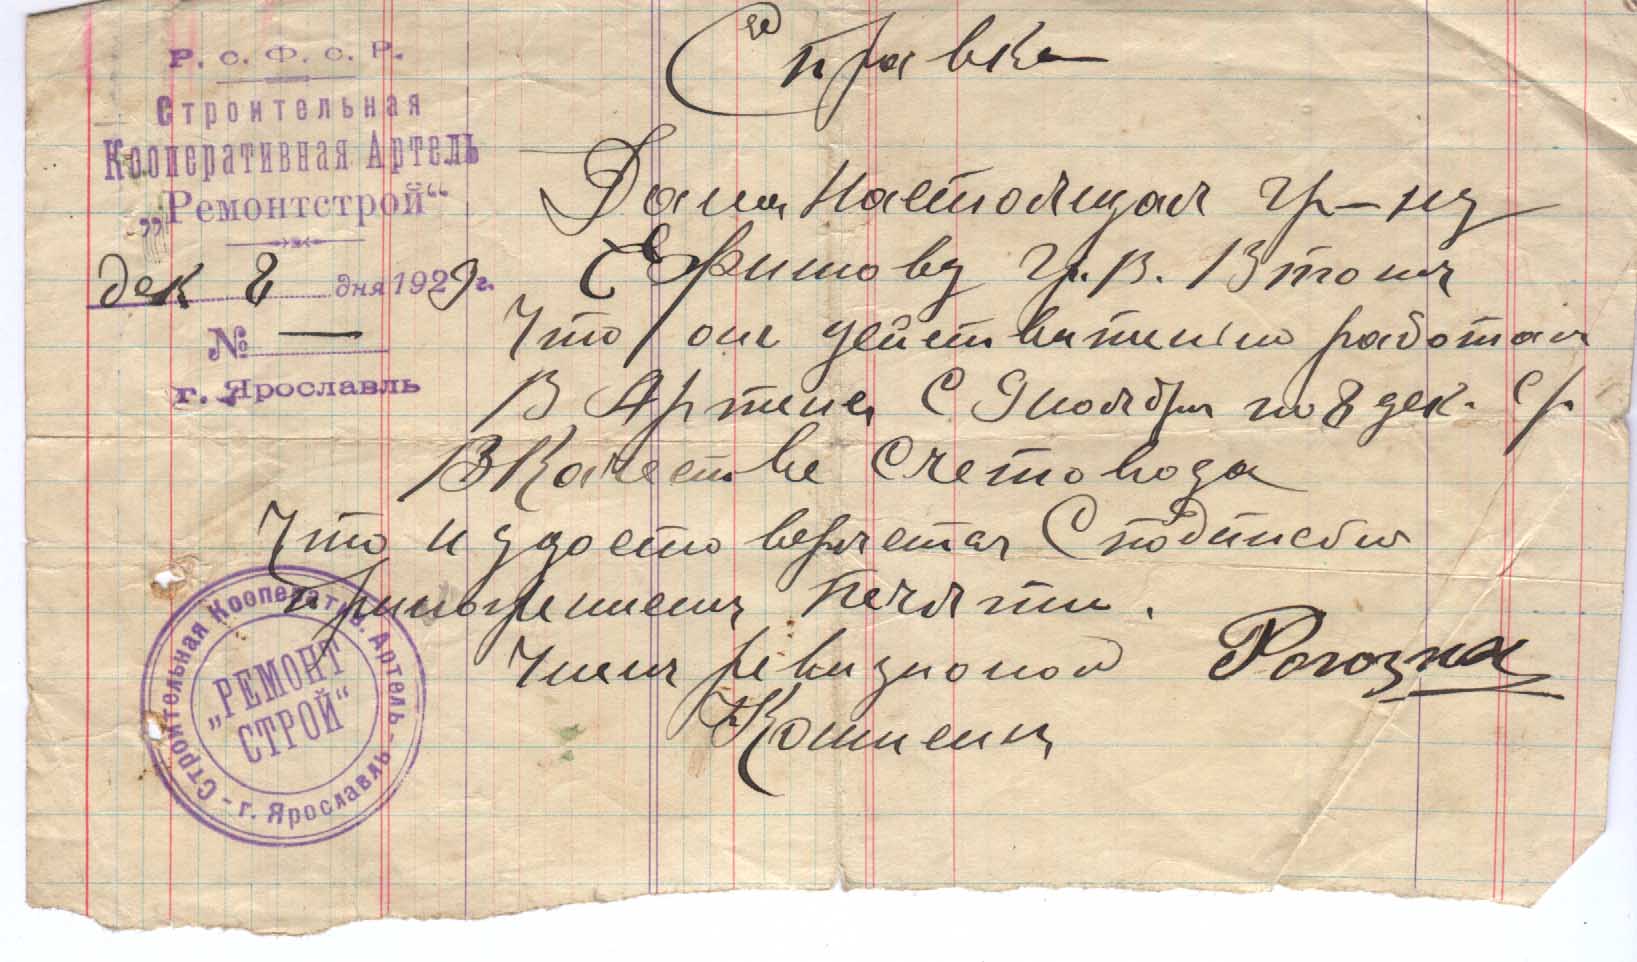 Р. С. Ф. С. Р.
Строительная
Кооперативная Артель
„Ремонтстрой“
дек 8 дня 1929 г.
№ —
г. Ярославль
Справка
Дана настоящая гр-ну
Ефимову Гр. В. В том
Что он действительно работал
В Артели С 9 ноября по 8 дек. с/г
В Качестве Счетовода
Что и удостоверяется С подписью
приложением печяти.
Член ревизионой Рогозка
Комисии
Строительная Кооператив. Артель - г. Ярославль -
„РЕМОНТ
СТРОЙ“